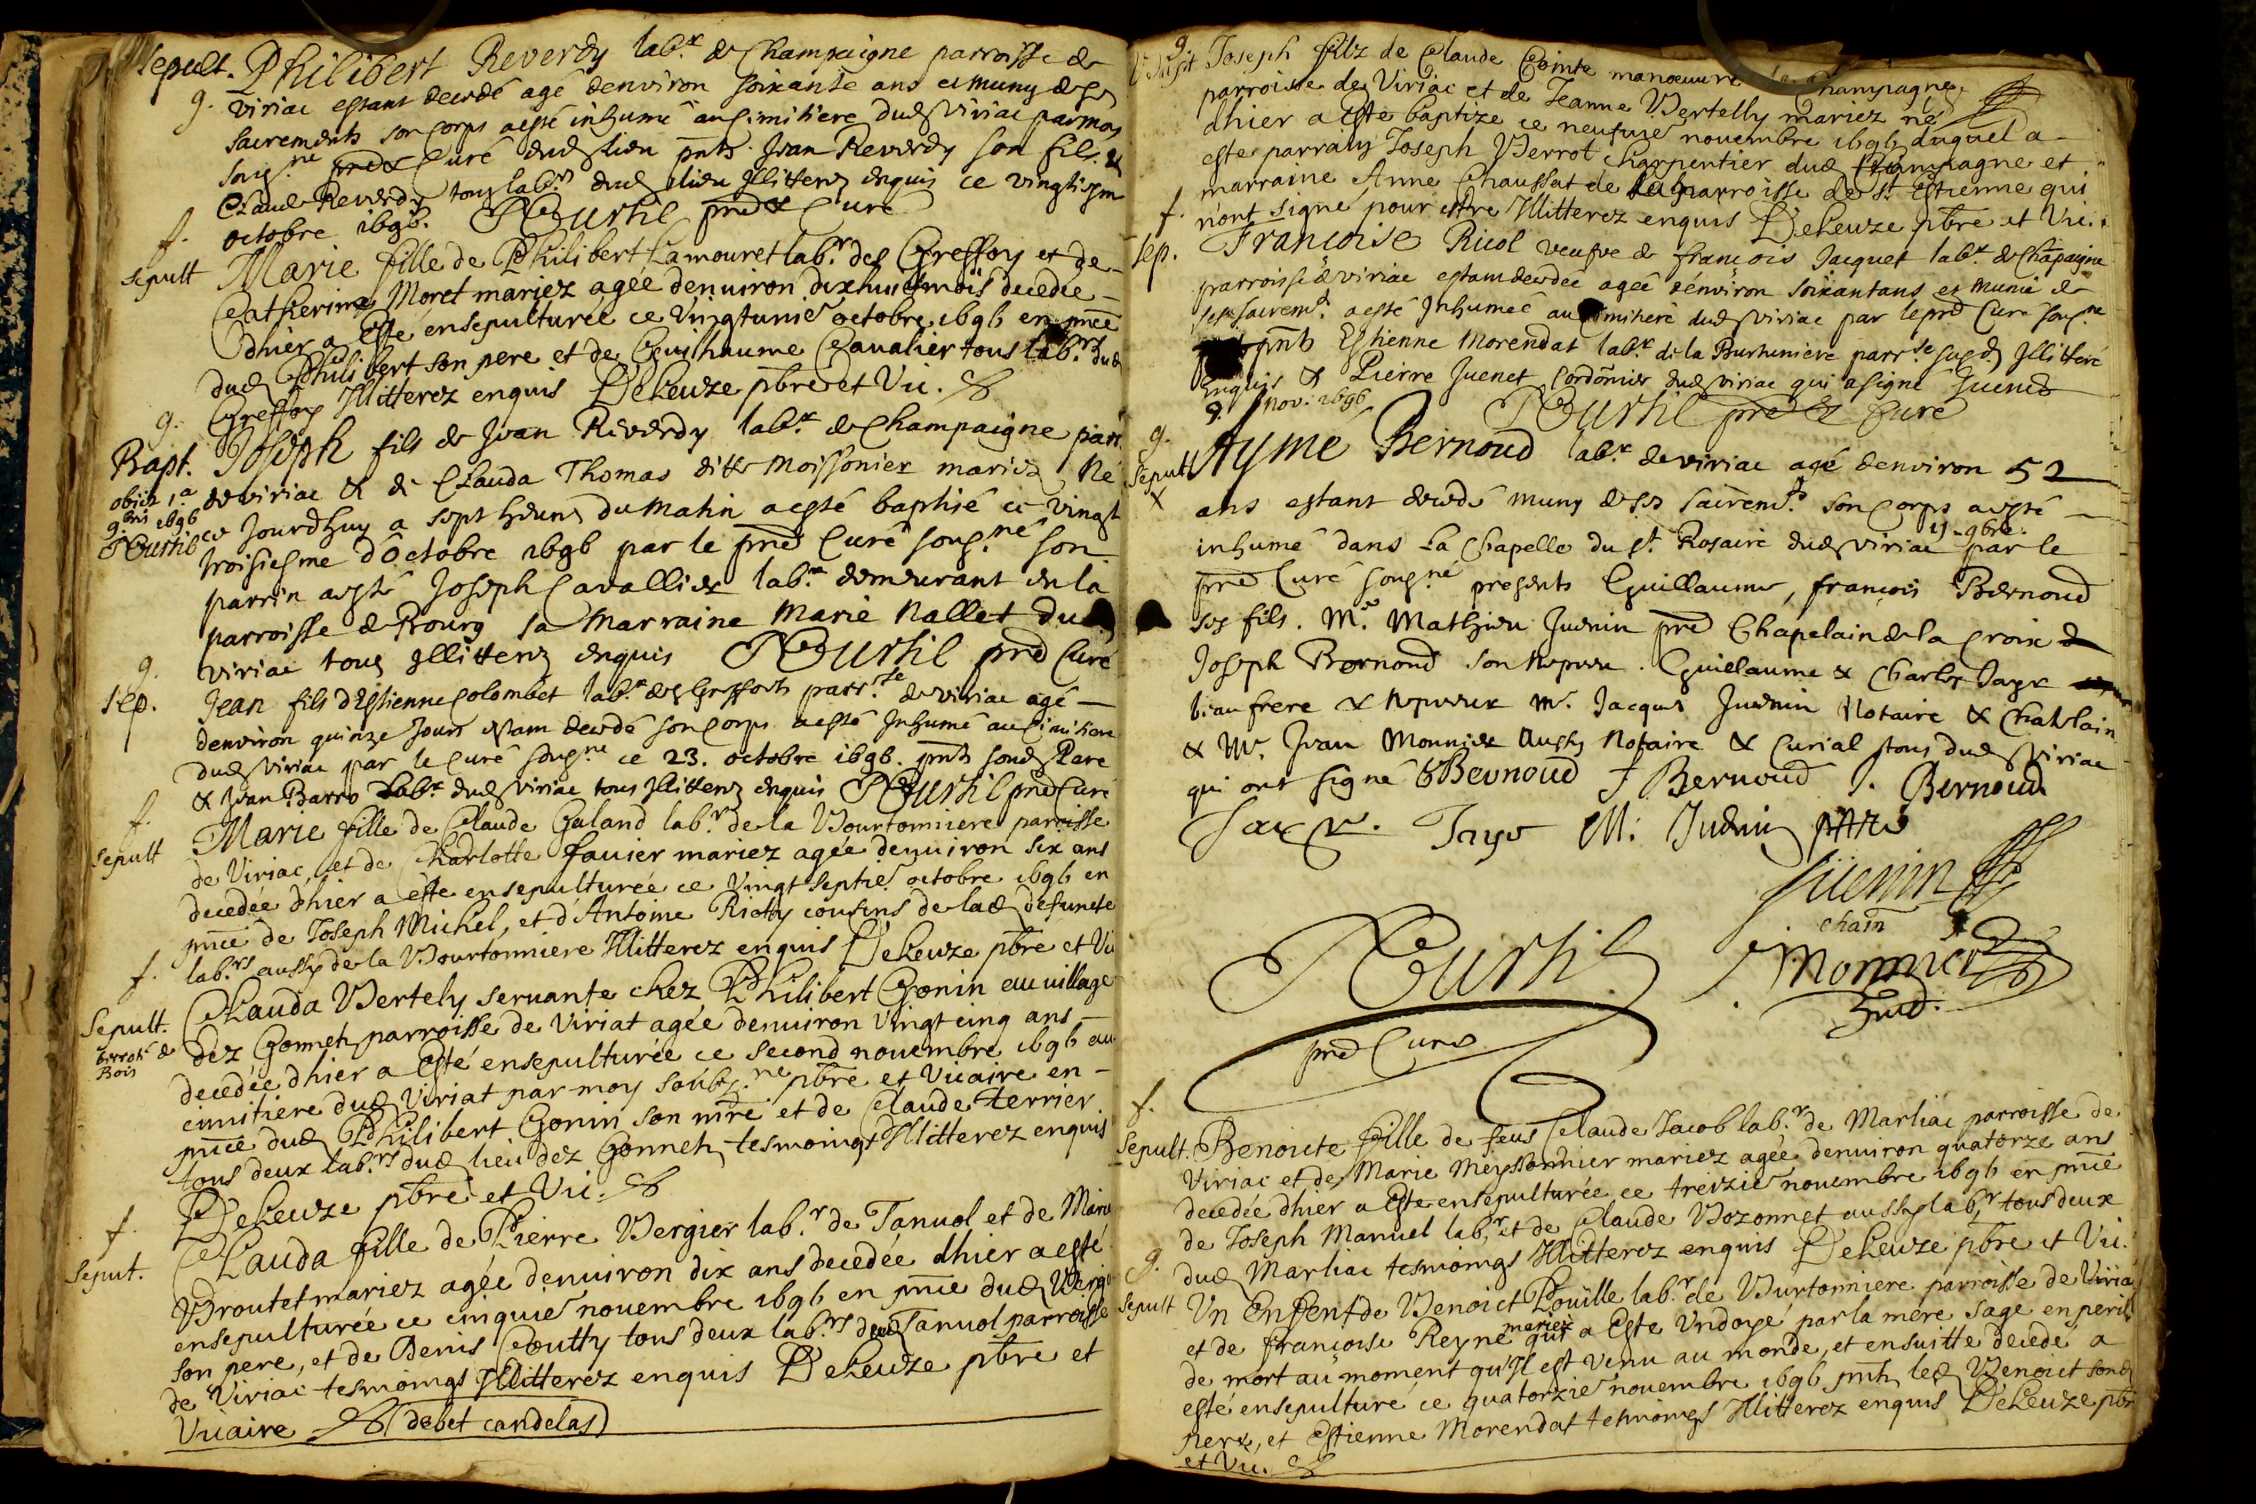 sepult. Philibert Reverdy lab.r de Champaigne parroisse de
g. viriac estant decedé agé denviron soixante ans et muny de ses
sacrements son corps aesté inhumé au cimitiere dud viriac par moy
sousg.né prebre Curé dud lieu pnts. Jean Reverdy son fils &
Claude Reverdy tous lab.rs dud lieu Illitterez enquis ce vingtiesme
octobre 1696. Curtil pre & Curé
f.
sepult Marie fille de Philibert Lamouret lab.r des Greffoy et de
Catherine Moret mariez agée denuiron dixhuit mois decedée
dhier a Esté ensepulturée ce vingtunie octobre 1696 en pnce
dud Philibert son pere et de Guilhaume Cavalier tous lab.rs dud
Greffoy Illitterez enquis DeLeuze pbre et Vic.
g.
Bapt. Joseph fils de Jean Reverdy lab.r de Champaigne parr.
obiit 1.a
9bris 1696
Curtil
de viriac & de Clauda Thomas ditte Moissonier mariez Né
ce Jourdhuy a sept heures du Matin aesté baptisé ce vingt
troisiesme d'Octobre 1696 par le pred Curé sousg.né son
parrin aesté Joseph Cavallier lab.r demeurant en la
parroisse de Bourg sa Marraine Marie Nallet dud
viriac tous Illitterez enquis Curtil pred Curé
g.
sep. Jean fils d'Estienne Colombet lab.r des Greffoets parr.sse de viriac agé
denviron quinze Jours estant decedé son corps aesté Inhumé au Cimitiere
dud viriac par le Curé sousg.né ce 23. octobre 1696. pnts sond Pere
& Jean Barro Lab.r dud viriac tous Illitterez enquis Curtil pred Curé
f.
sepult Marie fille de Claude Galand lab.r de la Bourtonniere paroisse
de Viriac, et de Charlotte Fauier mariez agée denuiron six ans
decedée dhier a este ensepulturée ce Vingt septie octobre 1696 en
pnce de Joseph Michel, et d'Antoine Richy cousins de lad defuncte
lab.rs aussy de la Bourtonniere Illitterez enquis DeLeuze pbre et Vic
f.
Sepult. Clauda Bertely seruante chez Philibert Gonin au uillage
Bois
dez Gonneh parroisse de Viriat agée denuiron Vingt cinq ans
decedée dhier a Esté ensepulturée ce second nouembre 1696 au
cimitiere dud Viriat par moy soubs.né pbre et Vicaire en
pnce dud Philibert Gonin son mre et de Claude Terrier
tous deux lab.rs dud lieu dez Gonneh tesmoings Illitterez enquis
DeLeuze pbre et Vic.
f.
seput. Clauda fille de Pierre Bergier lab.r de Tanuol et de Marie
Broutet mariez agée denuiron dix ans decedée dhier aesté
ensepulturée ce cinquie nouembre 1696 en pnce dud Bergier
son pere, et de Denis Coutty tous deux lab.rs dud Tanuol parroisse
de Viriac tesmoings Illitterez enquis DeLeuze pbre et
Vicaire (debet candelas)
g.
Bapt Joseph filz de Claude Cointe manoeuure Champagne
parroisse de Viriac et de Jeanne Bertelly mariez né
dhier a Este baptize ce neufuie nouembre 1696 duquel a
este parrain Joseph Berrot charpentier dud Champagne et
marraine Anne Chaussat de la parroisse de St. Estienne qui
n'ont signé pour estre Illitterez enquis DeLeuze pbre et Vic.
f.
sep. Françoise Ricol veufve de françois Jacquet lab.r de Chapaigne
parroisse de viriac estant decedée agée denviron soixantans et munie de
ses sacrem.ts aesté Inhumée au Cimitiere dud viriac par le pred Curé sousg.né
pnts Estienne Morendat lab.r de la Burtuniere parr.sse susd Illitteré
enquis & Pierre Juenet Cordonnier dud viriac qui a signé Juenet
9 nov. 1696 Curtil pred & Curé
g.
Sepult Aymé Bernoud lab.r de viriac agé denviron 52
X
ans estant decedé muny de ses sacrem.ts son corps aesté
inhumé dans la Chapelle du St. Rosaire dud viriac 13 9bre. par le
pred Curé sousg.né presents Guillaume, françois Bernoud
ses fils. M.e Mathieu Juenin pre Chapelain de la Croix
Joseph Bernoud son nepveu. Guillaume & Charles Jaye
beaufrere & nepveux M.e Jacques Juenin Notaire & Chatelain
& M.e Jean Monnier Aussy Notaire & Curial tous dud Viriac
qui ont signé G Bernoud f Bernoud J. Bernoud
Jaye. Jaye M. Juenin pttre
Juenin
chaîn
Curtil Monnier
pred Curé
f.
Sepult. Benoite fille de feus Claude Jacob lab.r de Marliac parroisse de
Viriac et de Marie Meyssonnier mariez agée denuiron quatorze ans
decedée dhier a Este ensepulturée ce treizie nouembre 1696 en pnce
de Joseph Manuel lab.r, et de Claude Bozonnet aussy lab.r tous deux
dud Marliac tesmoings Illitterez enquis DeLeuze pbre et Vic.
g.
Sepult Un Enfent de Benoict Pouille lab.r de Burtonniere parroisse de Viriac
et de françoise Reyne mariez qui a Este Undoyé par la mere sage en peril
de mort au moment qu'Il est venu au monde, et ensuitte decedé a
esté ensepulturé ce quatorzie nouembre 1696 pnts led Benoict sond
pere, et Estienne Morendat tesmoings Illitterez enquis DeLeuze pbr
et Vic.